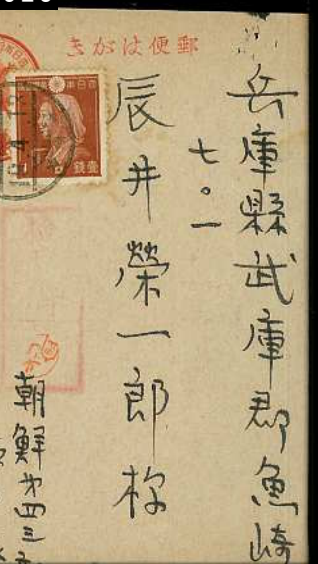 郵便はがき
兵庫縣武庫郡魚崎
七〇一
辰井榮一郎様
朝鮮才四三